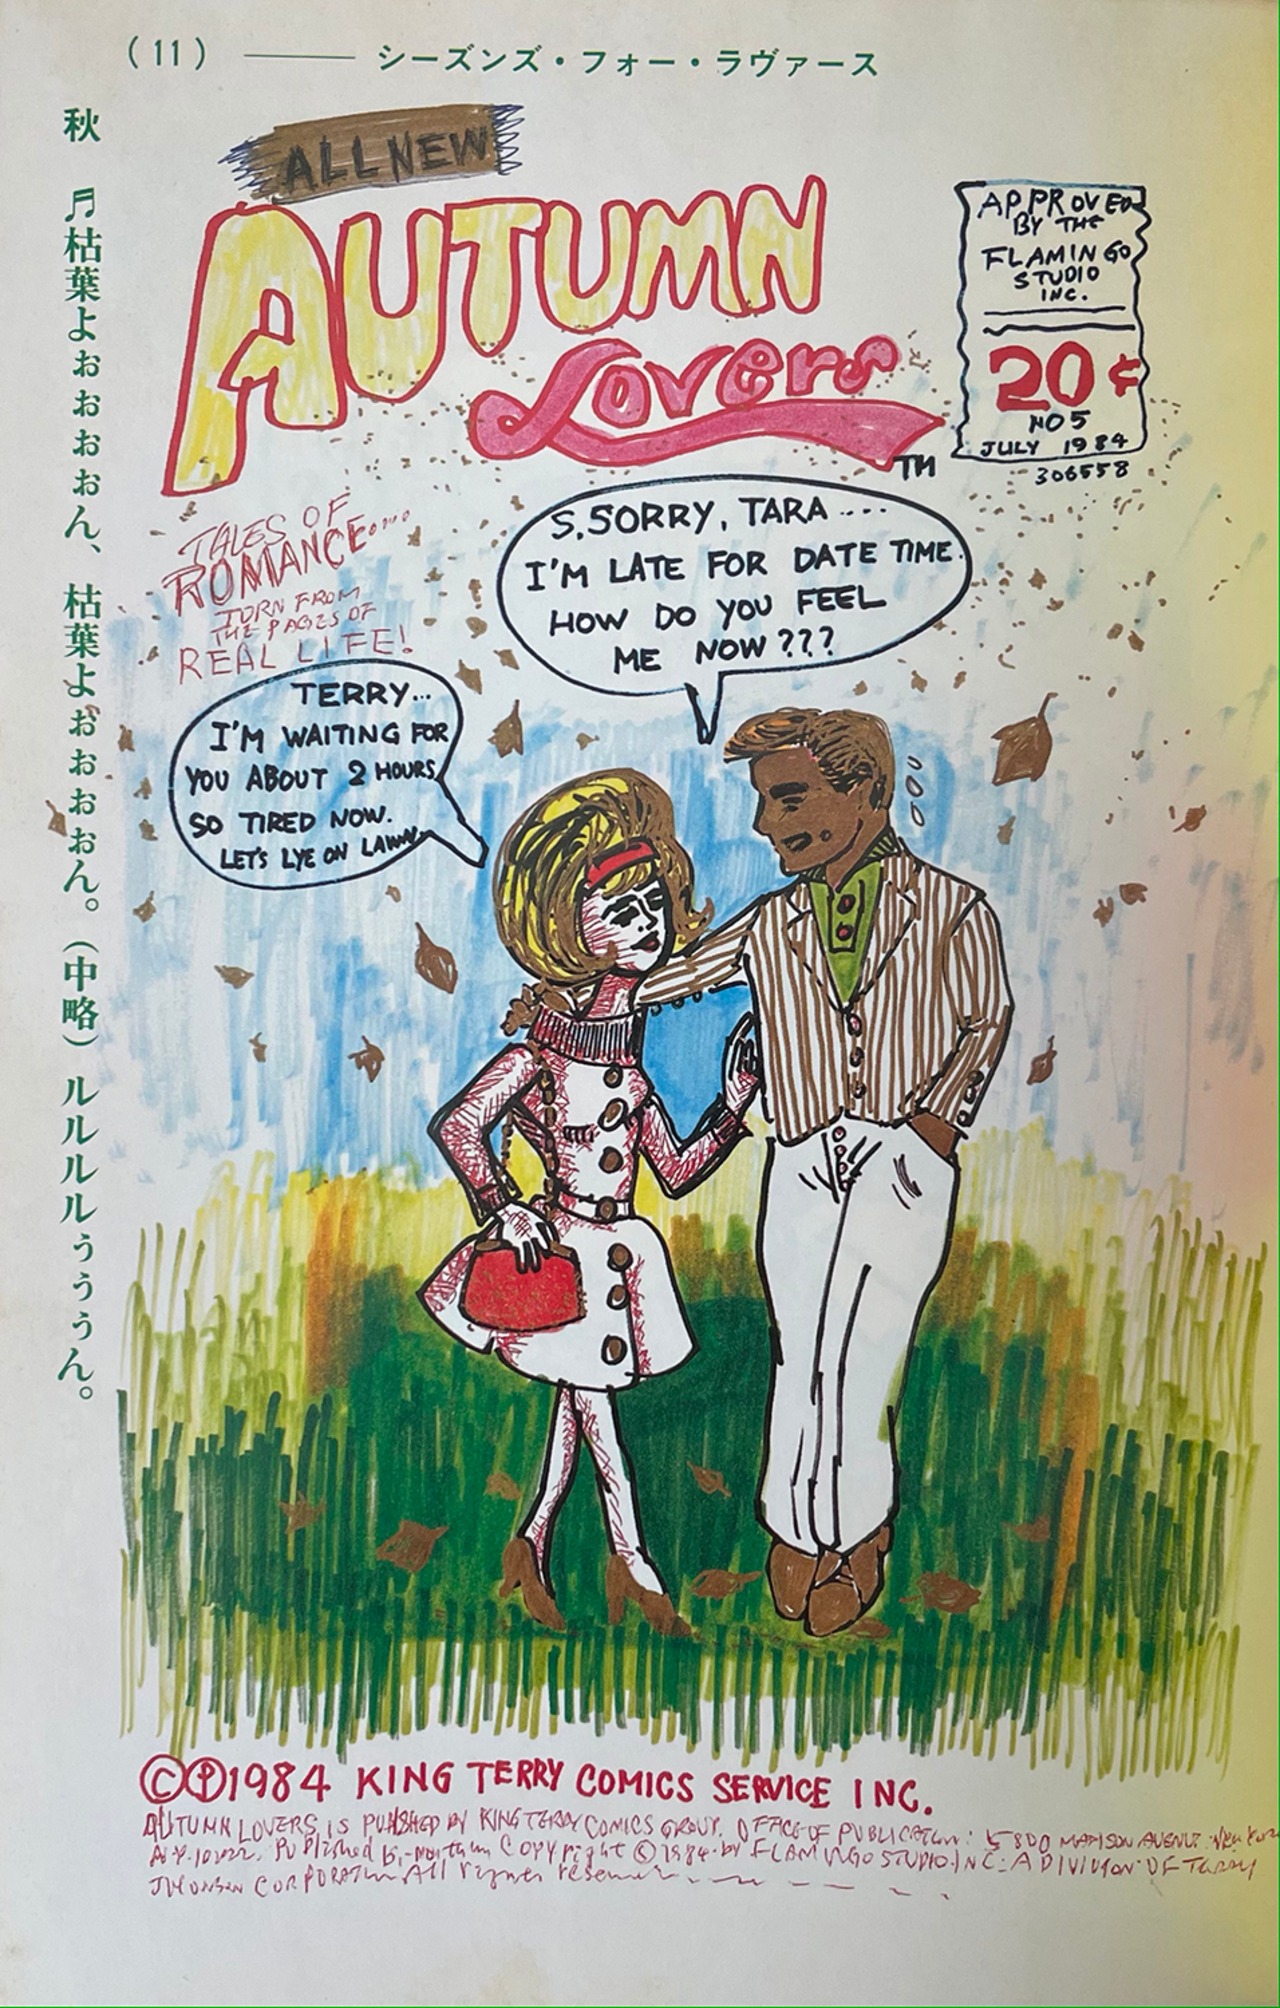 (11) ——— シーズンズ・フォー・ラヴァース
秋 ♬枯葉よぉぉぉぉん、枯葉よぉぉぉぉん。(中略)ルルルルぅぅぅん。
ALL NEW
AUTUMN
Lovers
TM
APPROVED
BY THE
FLAMINGO
STUDIO
INC.
20¢
NO5
JULY 1984
306558
TALES OF
ROMANCE....
TORN FROM
THE PAGES OF
REAL LIFE!
S,SORRY, TARA ....
I'M LATE FOR DATE TIME.
HOW DO YOU FEEL
ME NOW???
TERRY...
I'M WAITING FOR
YOU ABOUT 2 HOURS,
SO TIRED NOW.
LET'S LYE ON LAWN.
©℗1984 KING TERRY COMICS SERVICE INC.
AUTUMN LOVERS IS PUBLISHED BY KING TERRY COMICS GROUP. OFFICE OF PUBLICATION: 5800 MADISON AVENUE. New York
Published bi-monthly Copyright ©1984 by FLAMINGO STUDIO.INC. A DIVIVION OF Terry
CORPORATION All rights reserved